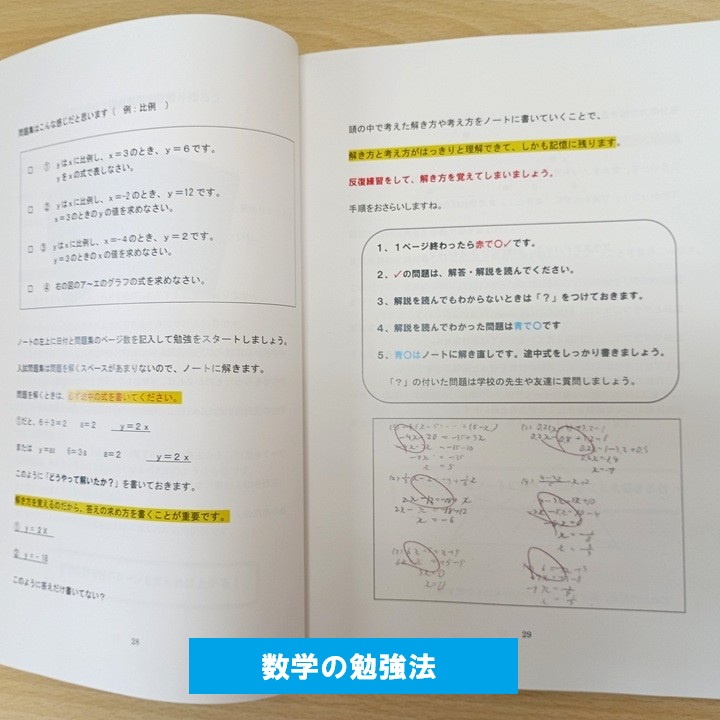 問題集はこんな感じだと思います（ 例：比例 ）
□ ① yはxに比例し、x＝3のとき、y＝6です。
yをxの式で表しなさい。
□ ② yはxに比例し、x＝-2のとき、y＝12です。
x＝3のときのyの値を求めなさい。
□ ③ yはxに比例し、x＝-4のとき、y＝2です。
y＝3のときのxの値を求めなさい。
□ ④ 右の図のア～エのグラフの式を求めなさい。
ノートの左上に日付と問題集のページ数を記入して勉強をスタートしましょう。
入試問題集は問題を解くスペースがあまりないので、ノートに解きます。
問題を解くときは、必ず途中の式を書いてください。
①だと、6÷3＝2 a＝2 y＝2x
または y＝ax 6＝3a a＝2 y＝2x
このように「どうやって解いたか？」を書いておきます。
解き方を覚えるのだから、答えの求め方を書くことが重要です。
① y＝2x
② y＝－18
このように答えだけ書いてない？
28
頭の中で考えた解き方や考え方をノートに書いていくことで、
解き方と考え方がはっきりと理解できて、しかも記憶に残ります。
反復練習をして、解き方を覚えてしまいましょう。
手順をおさらいしますね。
1、1ページ終わったら赤で〇✓です。
2、✓の問題は、解答・解説を読んでください。
3、解説を読んでもわからないときは「？」をつけておきます。
4、解説を読んでわかった問題は青で〇です
5、青〇はノートに解き直しです。途中式をしっかり書きましょう。
「？」の付いた問題は学校の先生や友達に質問しましょう。
29
数学の勉強法